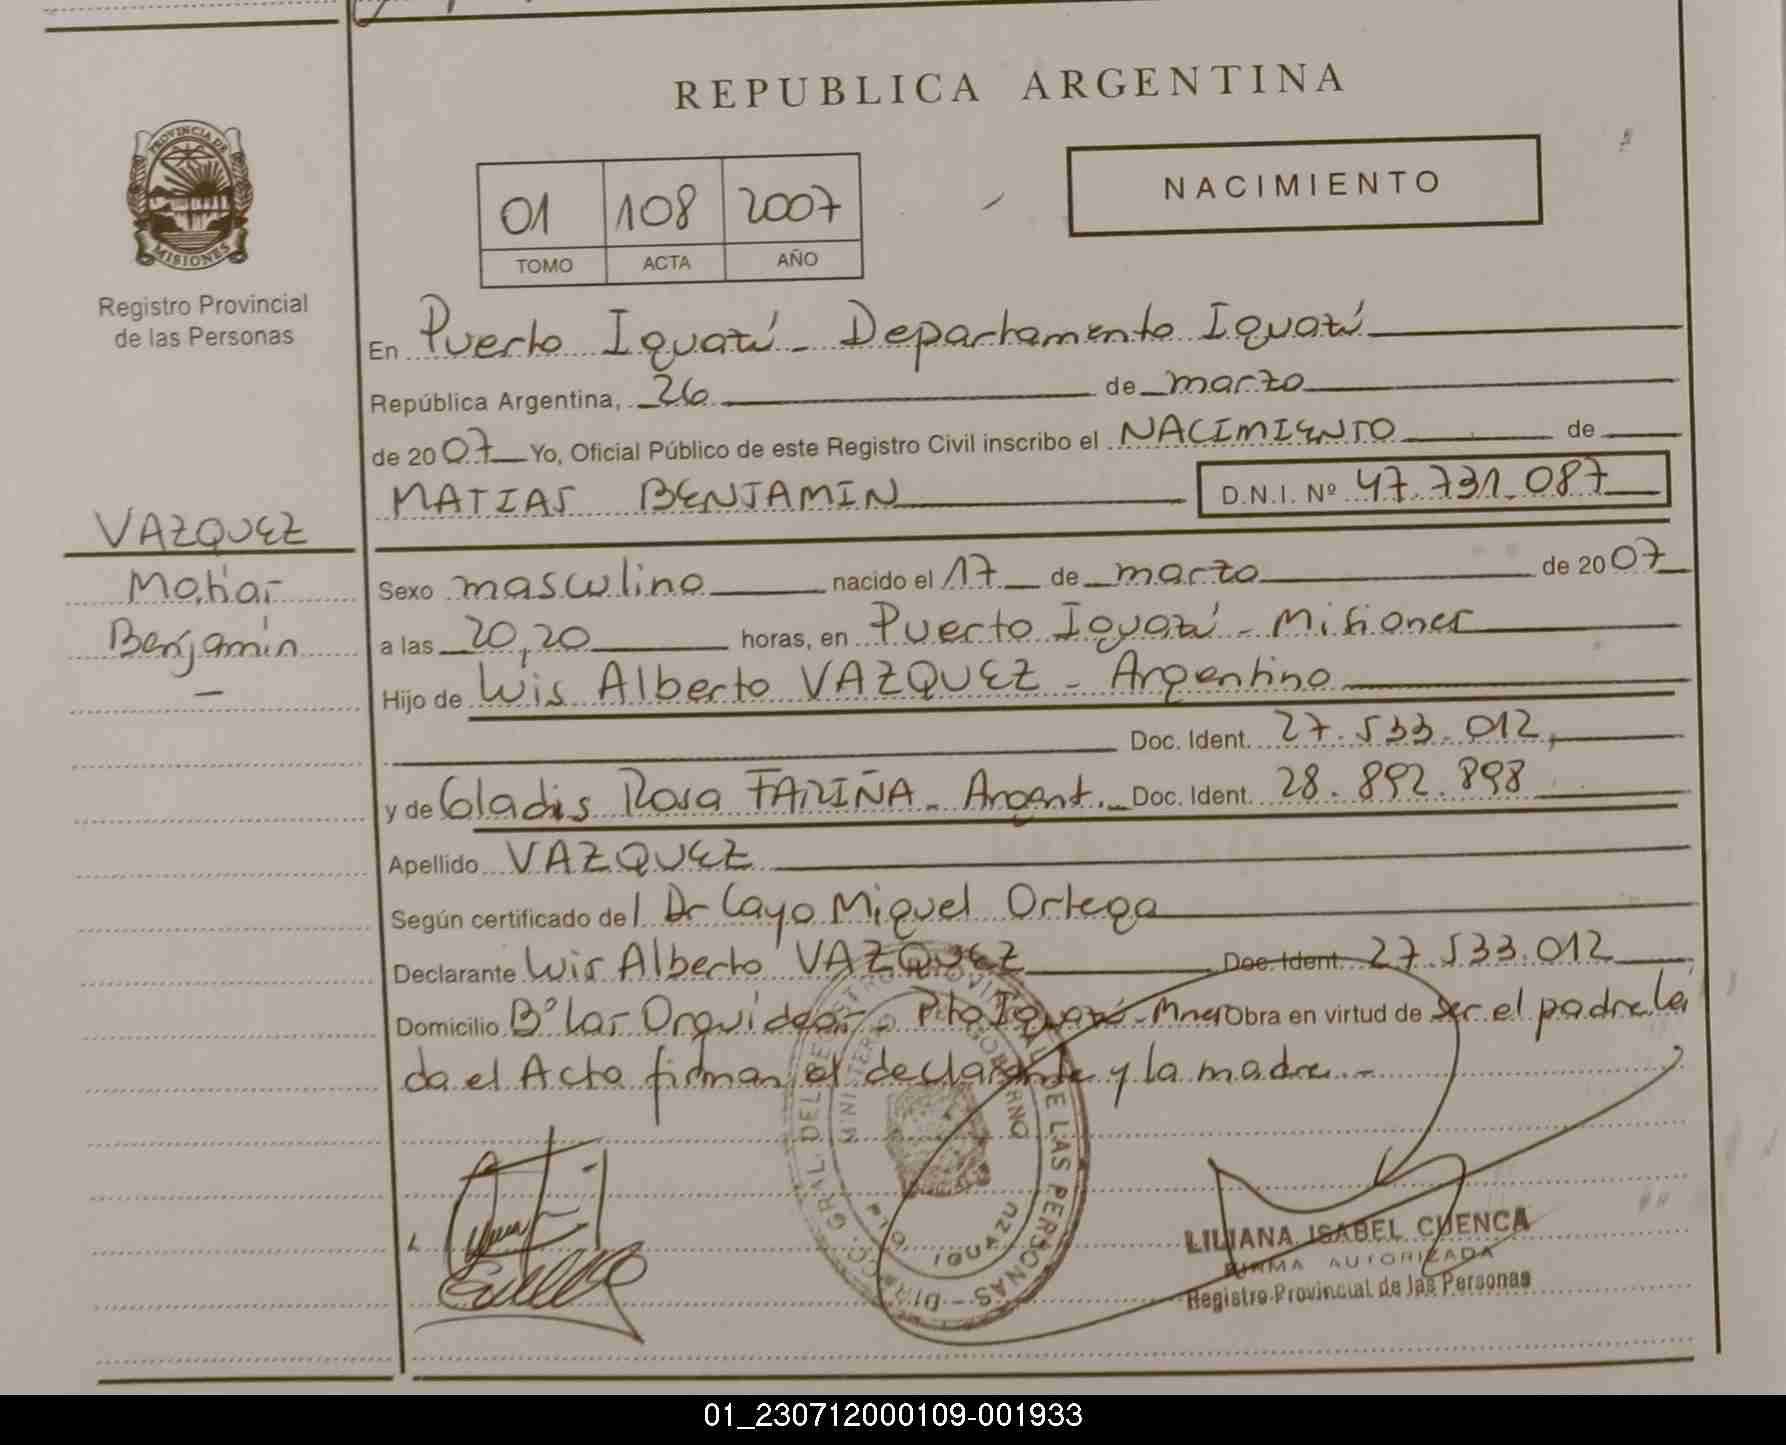 REPUBLICA ARGENTINA
PROVINCIA DE
MISIONES
Registro Provincial
de las Personas
01 108 2007
TOMO ACTA AÑO
NACIMIENTO
En Puerto Iguazú - Departamento Iguazú
República Argentina, 26 de marzo
de 2007 Yo, Oficial Público de este Registro Civil inscribo el NACIMIENTO de
MATIAS BENJAMIN D.N.I. Nº 47.731.087
VAZQUEZ
Matias
Benjamin
Sexo masculino nacido el 17 de marzo de 2007
a las 20,20 horas, en Puerto Iguazú - Misiones
Hijo de Luis Alberto VAZQUEZ - Argentino
Doc. Ident. 27.533.012,
y de Gladis Rosa FARIÑA - Argent. Doc. Ident. 28.892.898
Apellido VAZQUEZ
Según certificado del Dr Cayo Miguel Ortega
Declarante Luis Alberto VAZQUEZ Doc. Ident. 27.533.012
Domicilio Bº Las Orquideas - Pto Iguazú - Mnes Obra en virtud de ser el padre. Leí
da el Acta firman el declarante y la madre -
DIRECC. GRAL. DEL REGISTRO PROVINCIAL DE LAS PERSONAS
MINISTERIO GOBIERNO
PTO. IGUAZU
LILIANA ISABEL CUENCA
FIRMA AUTORIZADA
Registro Provincial de las Personas
01_230712000109-001933